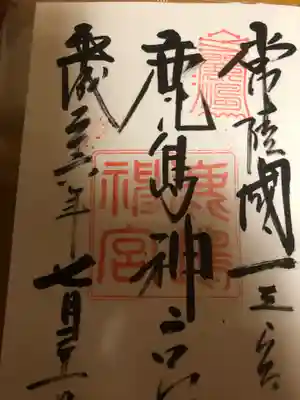 常陸國一之宮
鹿島神宮
平成二十六年七月二十
鹿島神宮